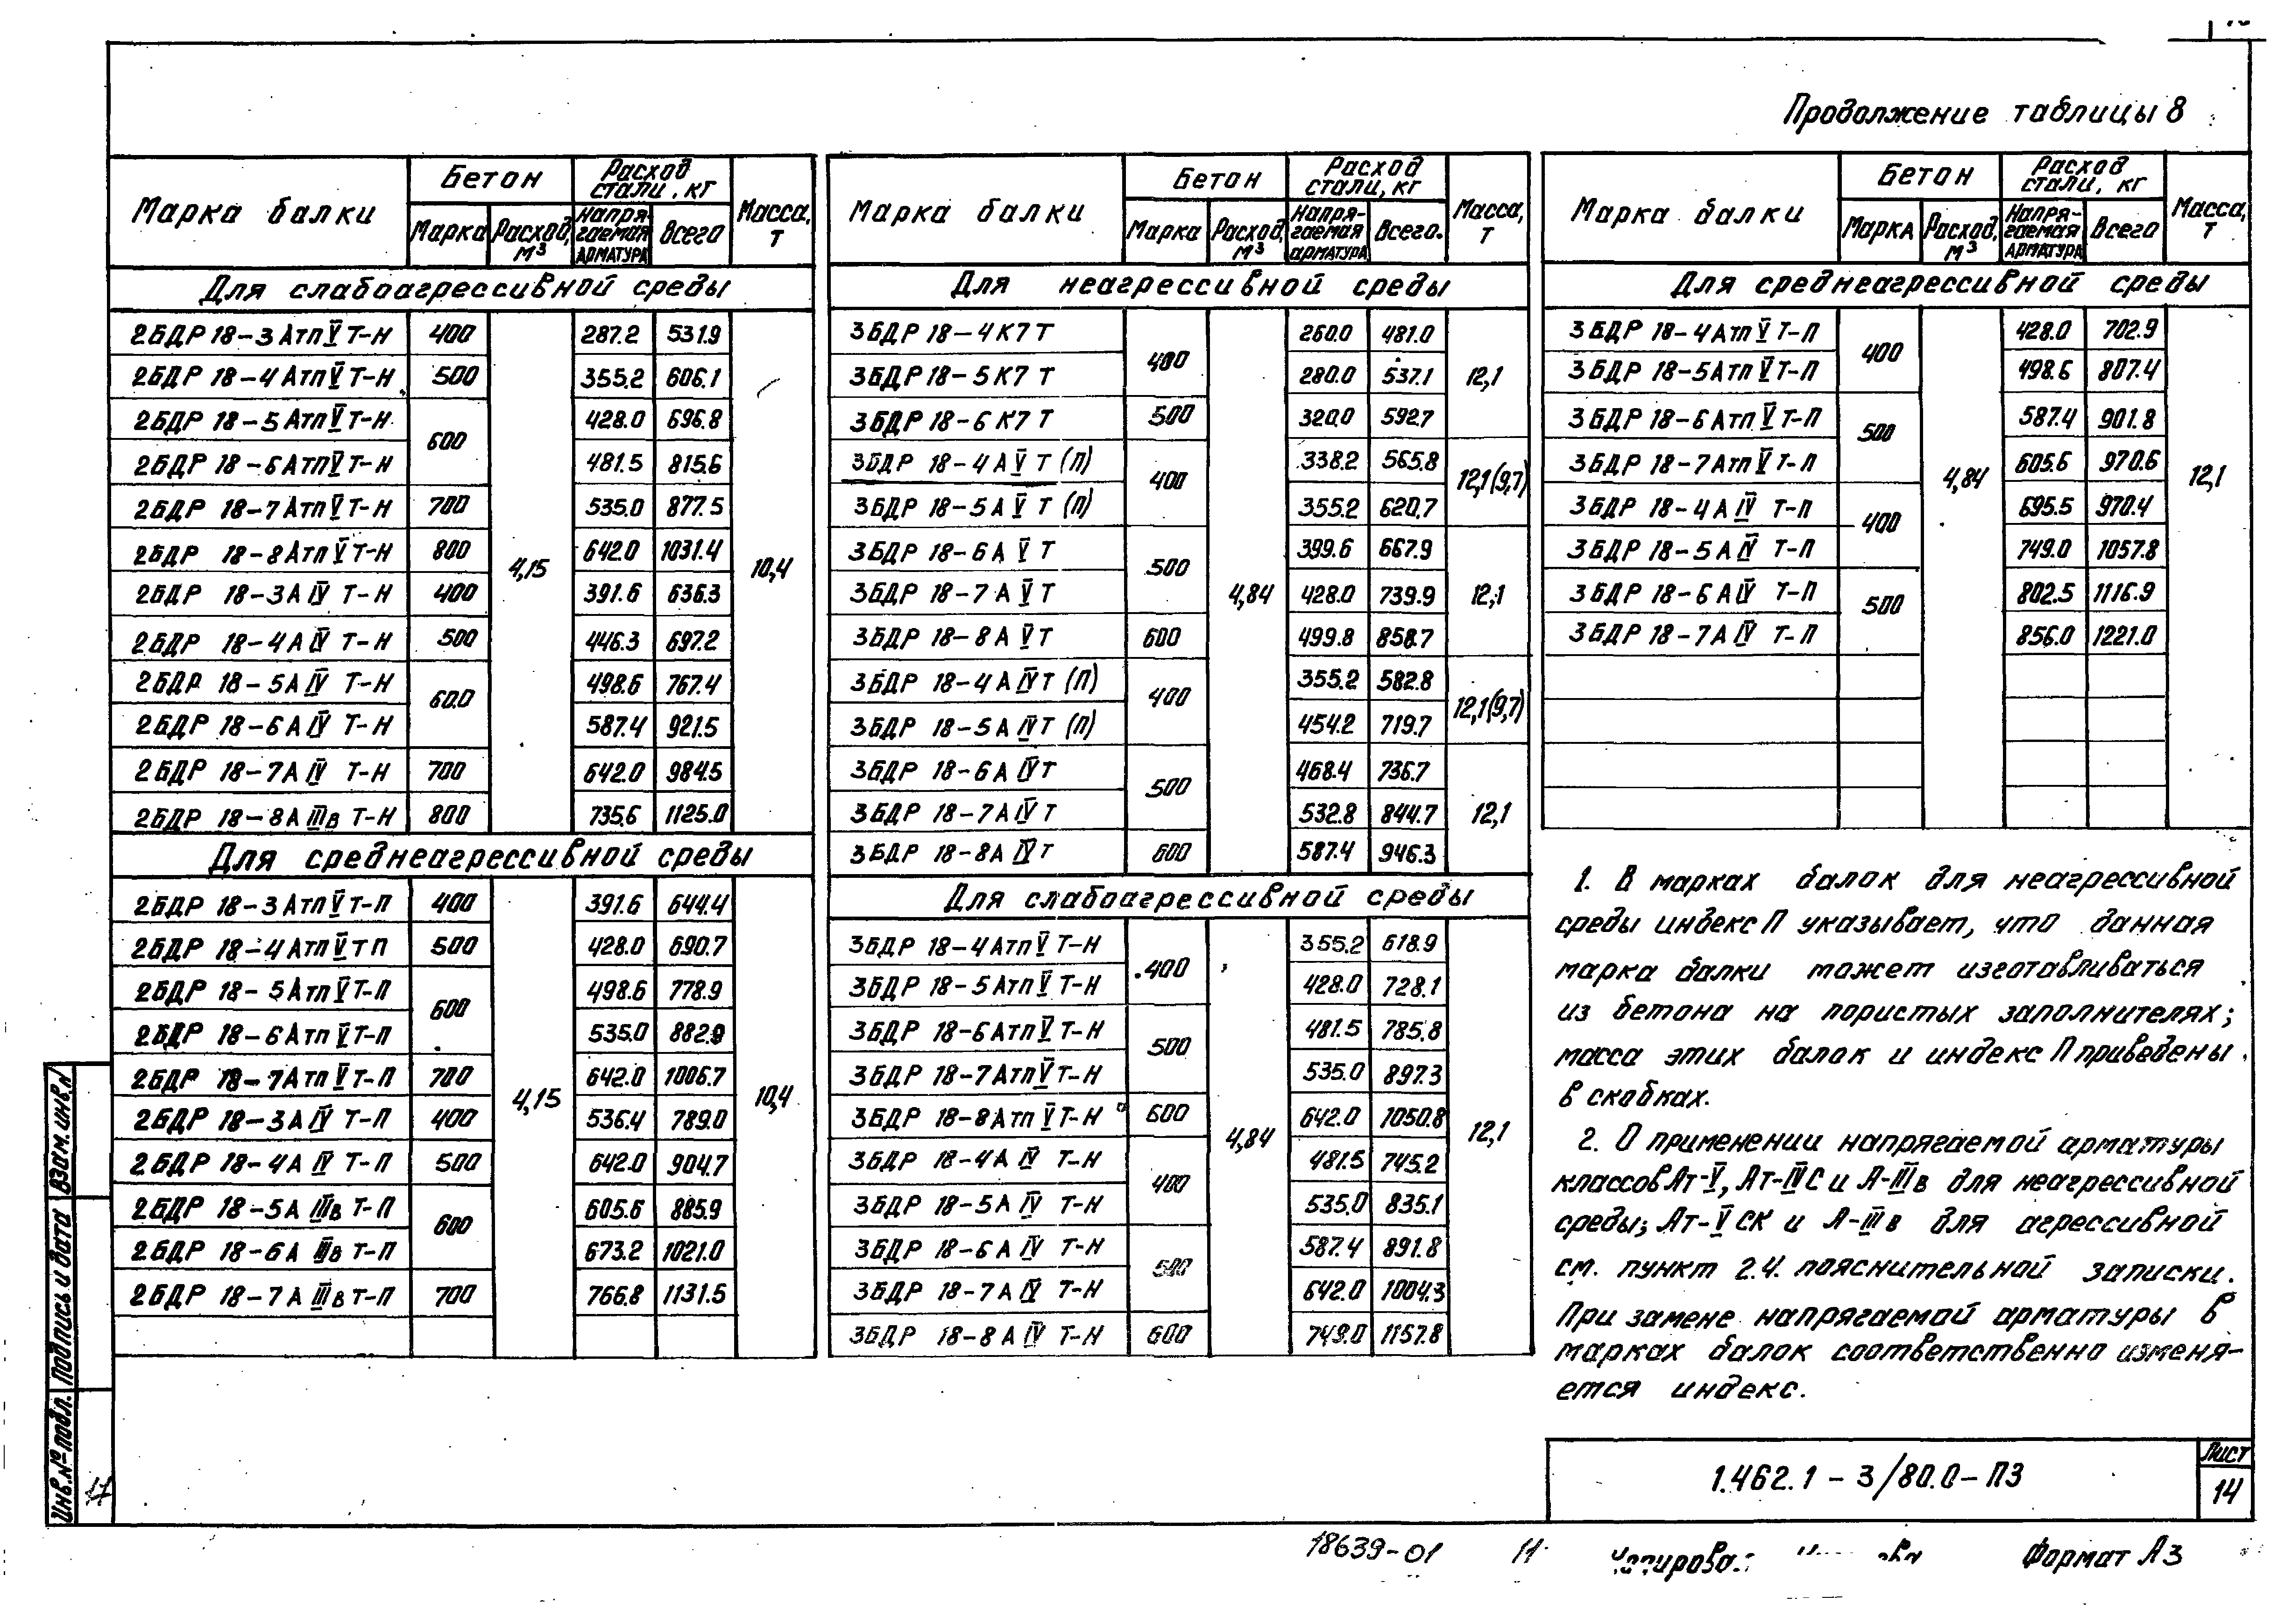 Продолжение таблицы 8
Марка балки Бетон Расход стали, кг Масса, т
Марка Расход, м³ Напрягаемая арматура Всего
Для слабоагрессивной среды
2БДР 18-3АтпV Т-Н 400 4,15 287.2 531.9 10,4
2БДР 18-4АтпV Т-Н 500 355.2 606.1
2БДР 18-5АтпV Т-Н 600 428.0 696.8
2БДР 18-6АтпV Т-Н 481.5 815.6
2БДР 18-7АтпV Т-Н 700 535.0 877.5
2БДР 18-8АтпV Т-Н 800 642.0 1031.4
2БДР 18-3АIV Т-Н 400 391.6 636.3
2БДР 18-4АIV Т-Н 500 446.3 697.2
2БДР 18-5АIV Т-Н 600 498.6 767.4
2БДР 18-6АIV Т-Н 587.4 921.5
2БДР 18-7АIV Т-Н 700 642.0 984.5
2БДР 18-8АIIIв Т-Н 800 735.6 1125.0
Для среднеагрессивной среды
2БДР 18-3АтпV Т-П 400 4,15 391.6 644.4 10,4
2БДР 18-4АтпV Т П 500 428.0 690.7
2БДР 18-5АтпV Т-П 600 498.6 778.9
2БДР 18-6АтпV Т-П 535.0 882.9
2БДР 18-7АтпV Т-П 700 642.0 1006.7
2БДР 18-3АIV Т-П 400 536.4 789.0
2БДР 18-4АIV Т-П 500 642.0 904.7
2БДР 18-5АIIIв Т-П 600 605.6 885.9
2БДР 18-6АIIIв Т-П 673.2 1021.0
2БДР 18-7АIIIв Т-П 700 766.8 1131.5
Марка балки Бетон Расход стали, кг Масса, т
Марка Расход, м³ Напрягаемая арматура Всего.
Для неагрессивной среды
3БДР 18-4К7 Т 400 4,84 260.0 481.0 12,1
3БДР 18-5К7 Т 280.0 537.1
3БДР 18-6К7 Т 500 320.0 592.7
3БДР 18-4АV Т (П) 400 338.2 565.8 12,1(9,7)
3БДР 18-5АV Т (П) 355.2 620.7
3БДР 18-6АV Т 500 399.6 667.9 12,1
3БДР 18-7АV Т 428.0 739.9
3БДР 18-8АV Т 600 499.8 858.7
3БДР 18-4АIV Т (П) 400 355.2 582.8 12,1(9,7)
3БДР 18-5АIV Т (П) 454.2 719.7
3БДР 18-6АIV Т 500 468.4 736.7 12,1
3БДР 18-7АIV Т 532.8 844.7
3БДР 18-8АIV Т 600 587.4 946.3
Для слабоагрессивной среды
3БДР 18-4АтпV Т-Н 400 4,84 355.2 618.9 12,1
3БДР 18-5АтпV Т-Н 428.0 728.1
3БДР 18-6АтпV Т-Н 500 481.5 785.8
3БДР 18-7АтпV Т-Н 535.0 897.3
3БДР 18-8АтпV Т-Н 600 642.0 1050.8
3БДР 18-4АIV Т-Н 400 481.5 745.2
3БДР 18-5АIV Т-Н 535.0 835.1
3БДР 18-6АIV Т-Н 500 587.4 891.8
3БДР 18-7АIV Т-Н 642.0 1004.3
3БДР 18-8АIV Т-Н 600 749.0 1157.8
Марка балки Бетон Расход стали, кг Масса, т
Марка Расход, м³ Напрягаемая арматура Всего
Для среднеагрессивной среды
3БДР 18-4АтпV Т-П 400 4,84 428.0 702.9 12,1
3БДР 18-5АтпV Т-П 498.6 807.4
3БДР 18-6АтпV Т-П 500 587.4 901.8
3БДР 18-7АтпV Т-П 605.6 970.6
3БДР 18-4АIV Т-П 400 695.5 970.4
3БДР 18-5АIV Т-П 749.0 1057.8
3БДР 18-6АIV Т-П 500 802.5 1116.9
3БДР 18-7АIV Т-П 856.0 1221.0
1. В марках балок для неагрессивной
среды индекс П указывает, что данная
марка балки может изготавливаться
из бетона на пористых заполнителях;
масса этих балок и индекс П приведены
в скобках.
2. О применении напрягаемой арматуры
классов Ат-V, Ат-IVС и А-IIIв для неагрессивной
среды; Ат-VСК и А-IIIв для агрессивной
см. пункт 2.4. пояснительной записки.
При замене напрягаемой арматуры в
марках балок соответственно изменя-
ется индекс.
1.462.1-3/80.0-ПЗ
Лист
14
Инв.№ подл. Подпись и дата Взам.инв.№
17
18639-01 11
Формат А3